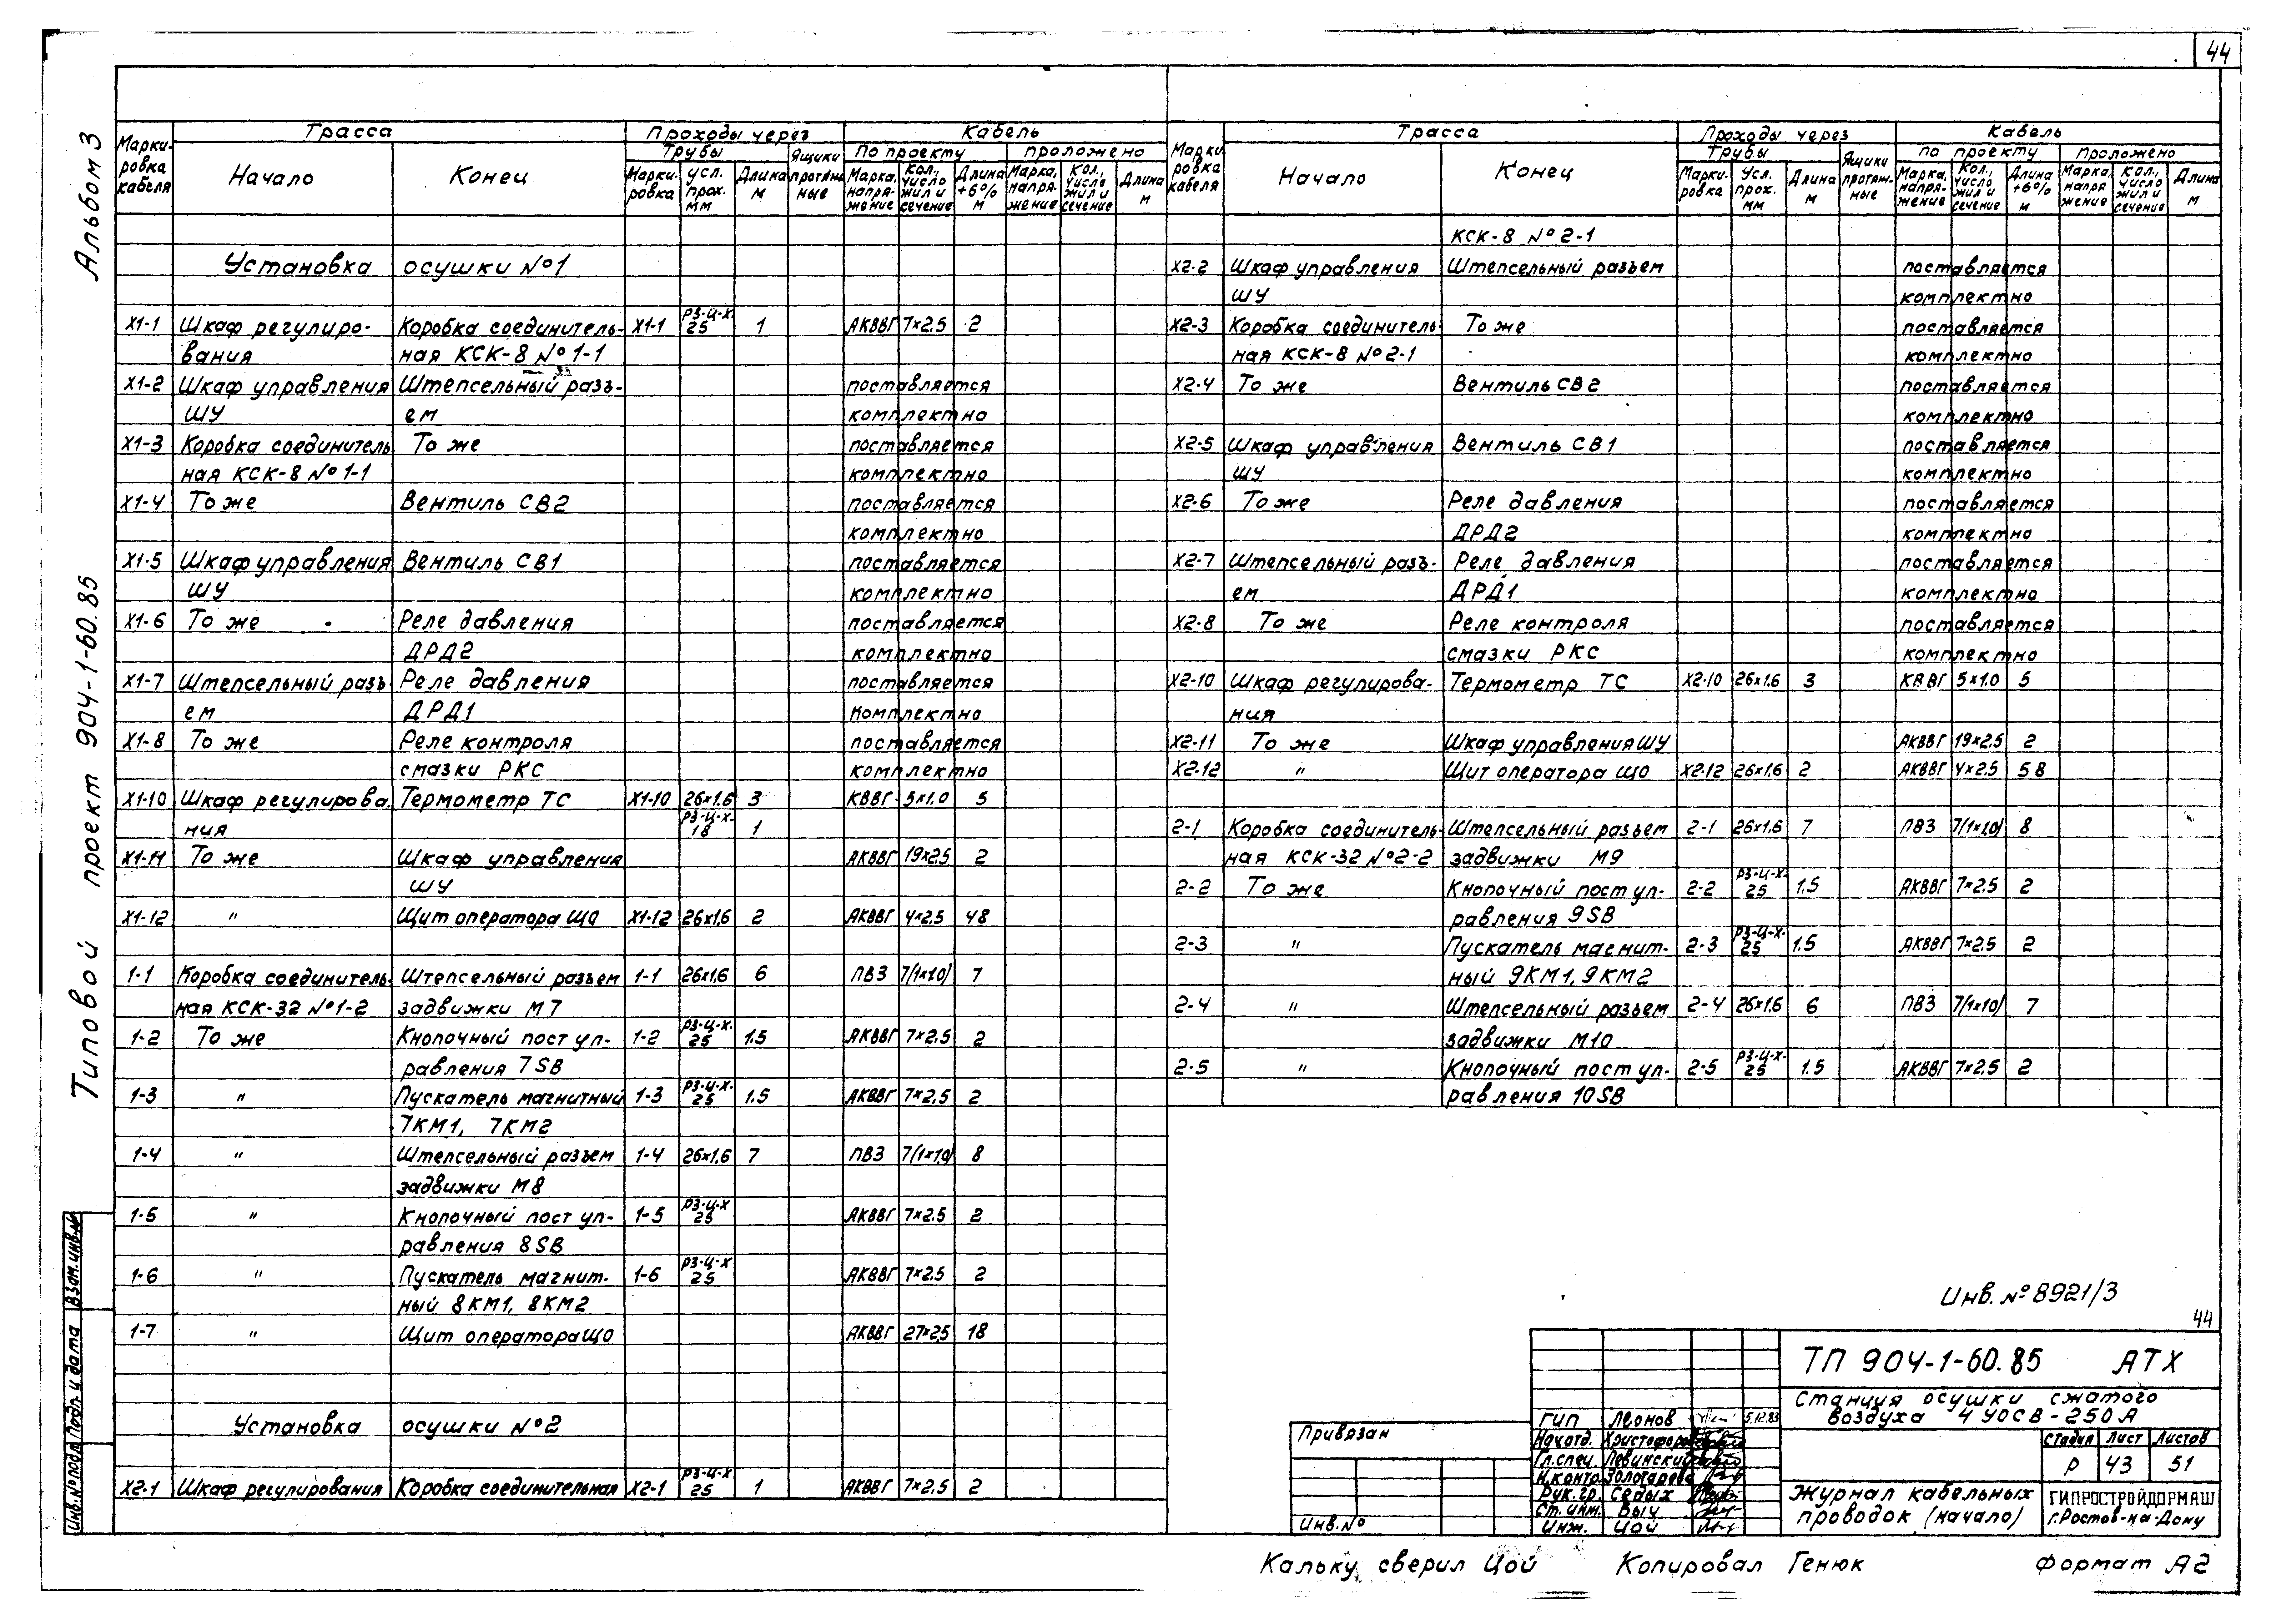 44
Альбом 3
Типовой проект 904-1-60.85
Взам.инв.№
Подп. и дата
Инв.№ подл.
Марки-ровка кабеля | Трасса | Проходы через | Кабель
Начало | Конец | Трубы | Ящики протяж-ные | По проекту | проложено
Марки-ровка | усл. прох. мм | Длина м | Марка, напря-жение | Кол., число жил и сечение | Длина +6% м | Марка, напря-жение | Кол., число жил и сечение | Длина м
Установка осушки №1
Х1-1 Шкаф регулиро- Коробка соединитель- Х1-1 РЗ-Ц-Х-25 1 АКВВГ 7×2.5 2
вания ная КСК-8 №1-1
Х1-2 Шкаф управления Штепсельный разъ- поставляется
ШУ ем комплектно
Х1-3 Коробка соединитель То же поставляется
ная КСК-8 №1-1 комплектно
Х1-4 То же Вентиль СВ2 поставляется
комплектно
Х1-5 Шкаф управления Вентиль СВ1 поставляется
ШУ комплектно
Х1-6 То же Реле давления поставляется
ДРД2 комплектно
Х1-7 Штепсельный разъ- Реле давления поставляется
ем ДРД1 комплектно
Х1-8 То же Реле контроля поставляется
смазки РКС комплектно
Х1-10 Шкаф регулирова- Термометр ТС Х1-10 26×1.6 3 КВВГ 5×1.0 5
ния РЗ-Ц-Х-18 1
Х1-11 То же Шкаф управления АКВВГ 19×2.5 2
ШУ
Х1-12 " Щит оператора ЩО Х1-12 26×1.6 2 АКВВГ 4×2.5 48
1-1 Коробка соединитель- Штепсельный разъем 1-1 26×1.6 6 ПВ3 7(1×1.0) 7
ная КСК-32 №1-2 задвижки М7
1-2 То же Кнопочный пост уп- 1-2 РЗ-Ц-Х-25 1.5 АКВВГ 7×2.5 2
равления 7SB
1-3 " Пускатель магнитный 1-3 РЗ-Ц-Х-25 1.5 АКВВГ 7×2.5 2
7КМ1, 7КМ2
1-4 " Штепсельный разъем 1-4 26×1.6 7 ПВ3 7(1×1.0) 8
задвижки М8
1-5 " Кнопочный пост уп- 1-5 РЗ-Ц-Х 25 АКВВГ 7×2.5 2
равления 8SB
1-6 " Пускатель магнит- 1-6 РЗ-Ц-Х 25 АКВВГ 7×2.5 2
ный 8КМ1, 8КМ2
1-7 " Щит оператора ЩО АКВВГ 27×2.5 18
Установка осушки №2
Х2-1 Шкаф регулирования Коробка соединительная Х2-1 РЗ-Ц-Х 25 1 АКВВГ 7×2.5 2
Марки-ровка кабеля | Трасса | Проходы через | Кабель
Начало | Конец | Трубы | Ящики протяж-ные | по проекту | проложено
Марки-ровка | Усл. прох. мм | Длина м | Марка, напря-жение | Кол., число жил и сечение | Длина +6% м | Марка, напря-жение | Кол., число жил и сечение | Длина м
КСК-8 №2-1
Х2-2 Шкаф управления Штепсельный разъем поставляется
ШУ комплектно
Х2-3 Коробка соединитель- То же поставляется
ная КСК-8 №2-1 комплектно
Х2-4 То же Вентиль СВ2 поставляется
комплектно
Х2-5 Шкаф управления Вентиль СВ1 поставляется
ШУ комплектно
Х2-6 То же Реле давления поставляется
ДРД2 комплектно
Х2-7 Штепсельный разъ- Реле давления поставляется
ем ДРД1 комплектно
Х2-8 То же Реле контроля поставляется
смазки РКС комплектно
Х2-10 Шкаф регулирова- Термометр ТС Х2-10 26×1.6 3 КВВГ 5×1.0 5
ния
Х2-11 То же Шкаф управления ШУ АКВВГ 19×2.5 2
Х2-12 " Щит оператора ЩО Х2-12 26×1.6 2 АКВВГ 4×2.5 58
2-1 Коробка соединитель- Штепсельный разъем 2-1 26×1.6 7 ПВ3 7(1×1.0) 8
ная КСК-32 №2-2 задвижки М9
2-2 То же Кнопочный пост уп- 2-2 РЗ-Ц-Х-25 1.5 АКВВГ 7×2.5 2
равления 9SB
2-3 " Пускатель магнит- 2-3 РЗ-Ц-Х-25 1.5 АКВВГ 7×2.5 2
ный 9КМ1, 9КМ2
2-4 " Штепсельный разъем 2-4 26×1.6 6 ПВ3 7(1×1.0) 7
задвижки М10
2-5 " Кнопочный пост уп- 2-5 РЗ-Ц-Х-25 1.5 АКВВГ 7×2.5 2
равления 10SB
Инв.№8921/3
44
ТП 904-1-60.85 АТХ
Станция осушки сжатого
воздуха 4 УОСВ-250А
Стадия Лист Листов
Р 43 51
Журнал кабельных
проводок (начало)
ГИПРОСТРОЙДОРМАШ
г.Ростов-на-Дону
ГИП Леонов 5.12.83
Нач.отд. Христофоров
Гл.спец. Левинский
Н.контр. Золотарева
Рук.гр. Седых
Ст.инж. Выч
Инж. Цой
Привязан
Инв.№
Кальку сверил Цой Копировал Генюк Формат А2